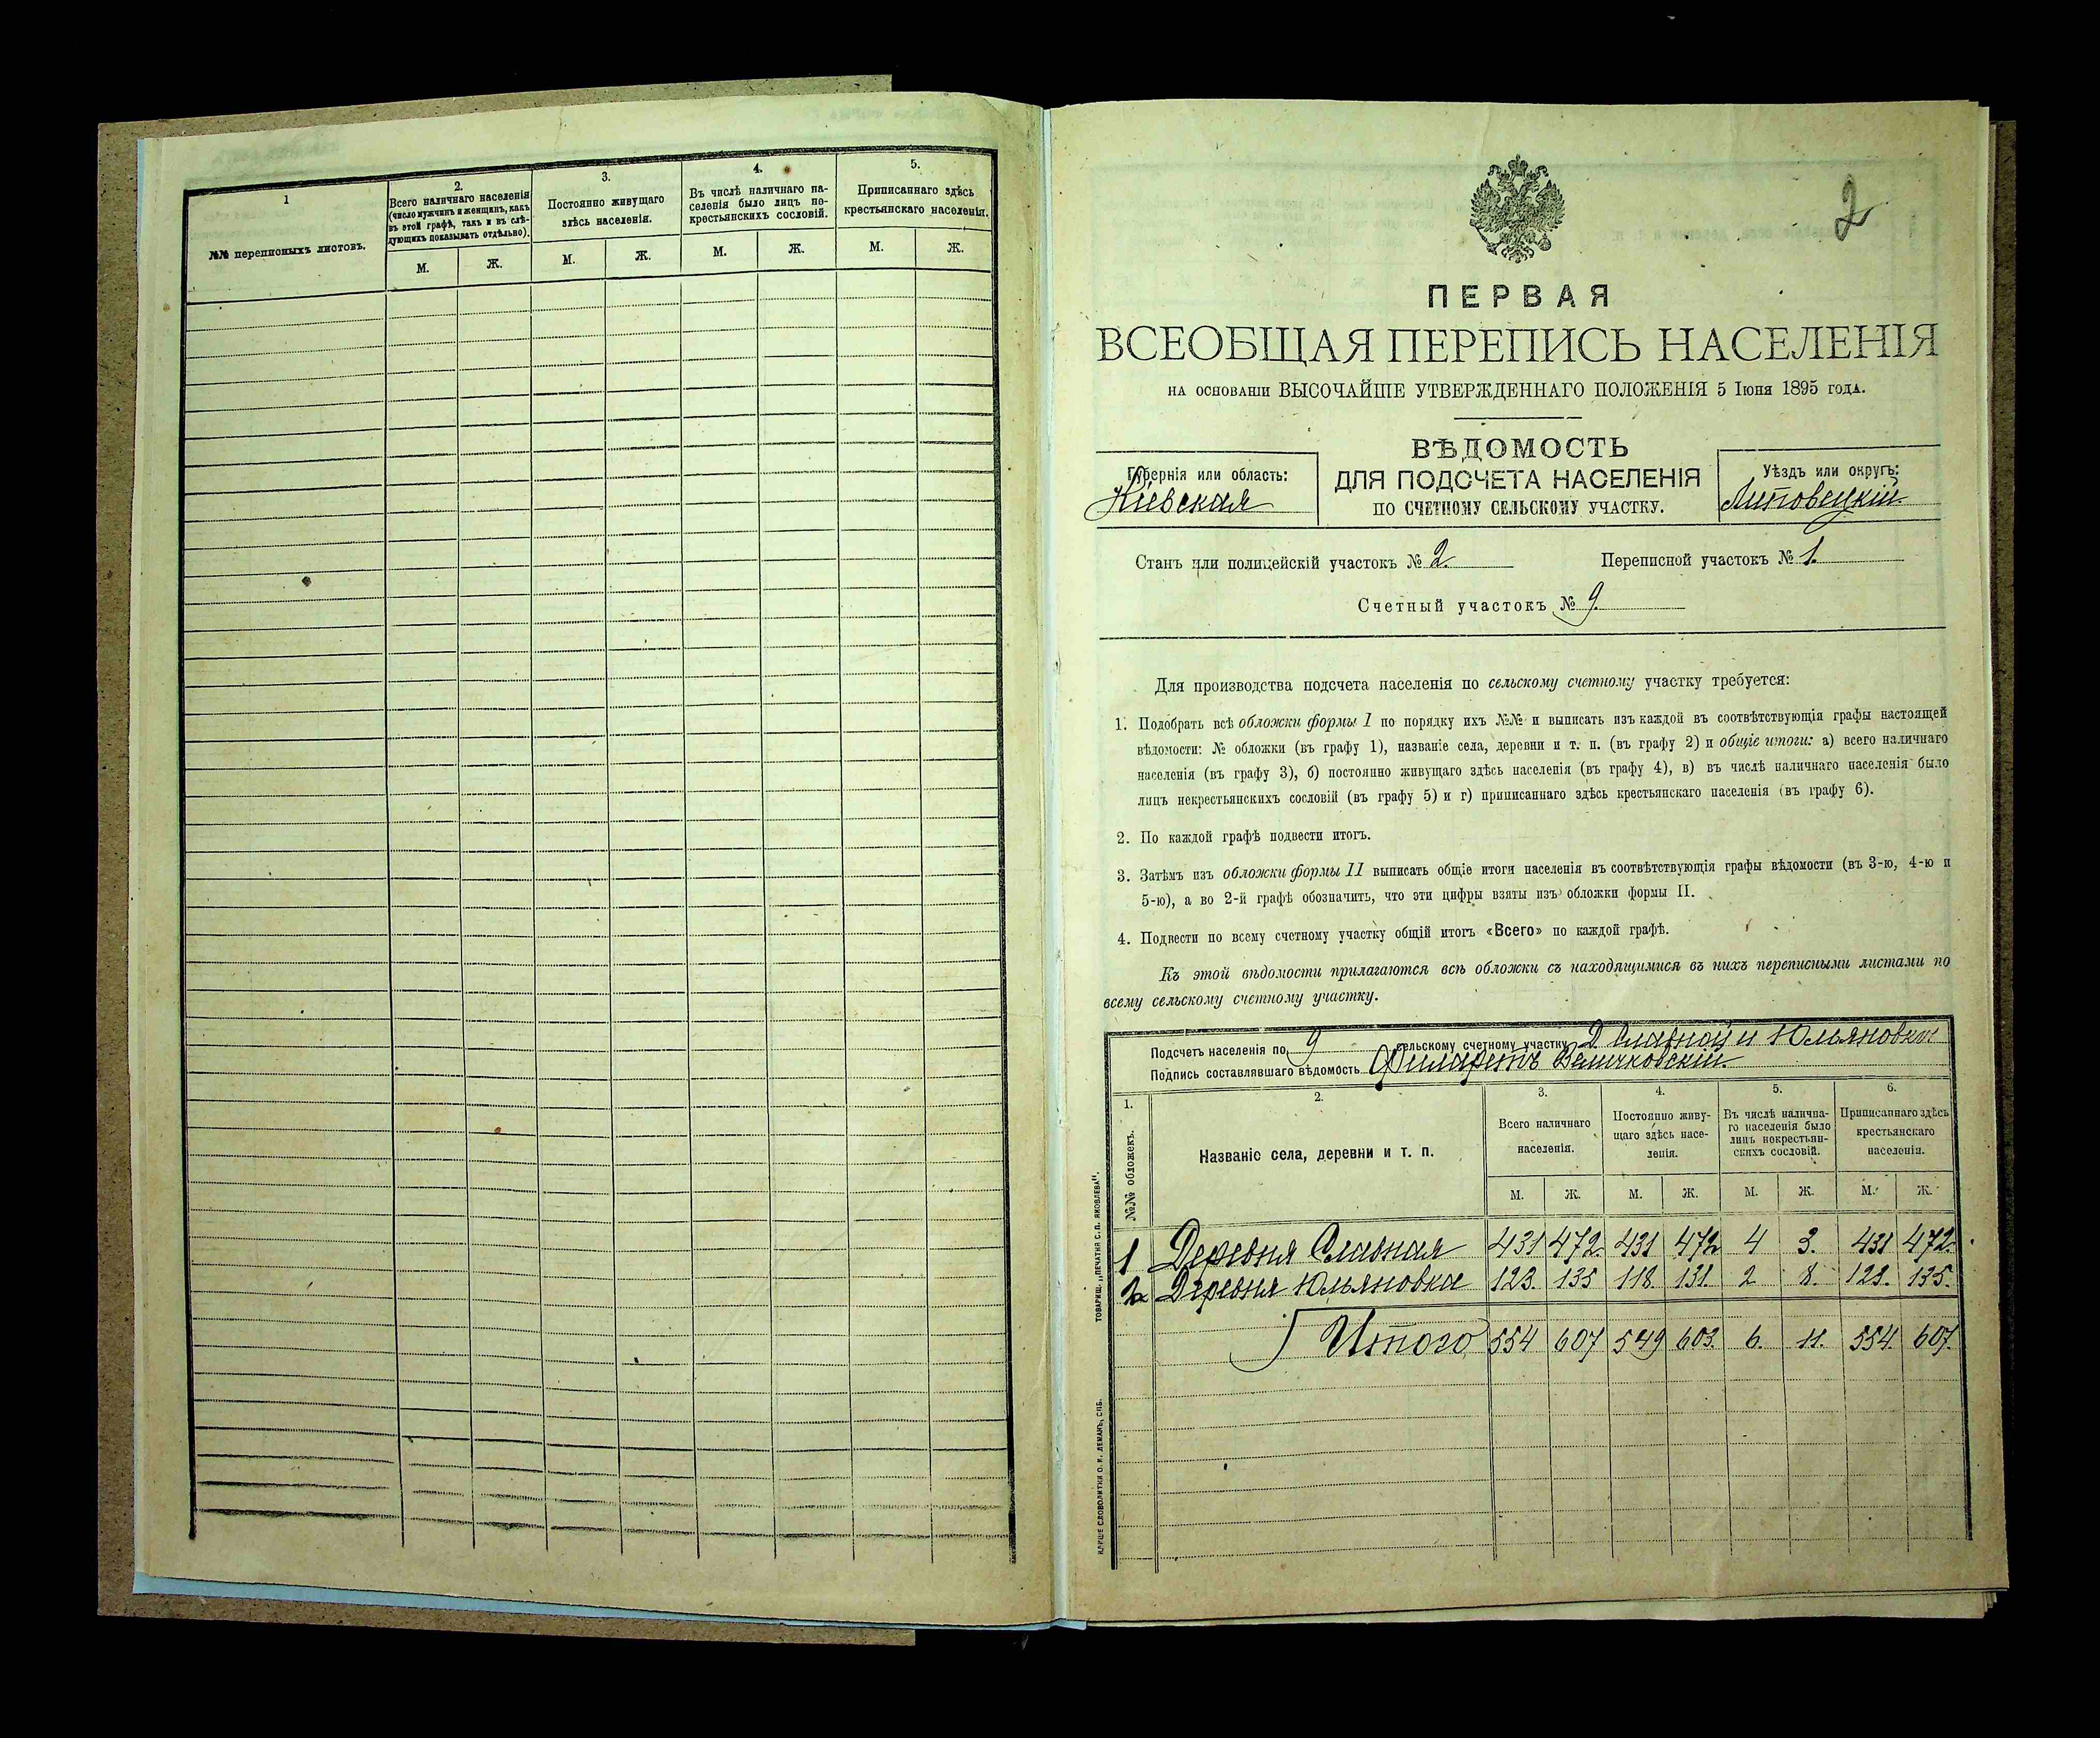 1
№№ переписныхъ листовъ.
2.
Всего наличнаго населенія
(число мужчинъ и женщинъ, какъ
въ этой графѣ, такъ и въ слѣ-
дующихъ показывать отдѣльно).
3.
Постоянно живущаго
здѣсь населенія.
4.
Въ числѣ наличнаго на-
селенія было лицъ не-
крестьянскихъ сословій.
5.
Приписаннаго здѣсь
крестьянскаго населенія.
М. Ж. М. Ж. М. Ж. М. Ж.
2
ПЕРВАЯ
ВСЕОБЩАЯ ПЕРЕПИСЬ НАСЕЛЕНІЯ
НА ОСНОВАНІИ ВЫСОЧАЙШЕ УТВЕРЖДЕННАГО ПОЛОЖЕНІЯ 5 Іюня 1895 года.
Губернія или область:
Кіевская
ВѢДОМОСТЬ
ДЛЯ ПОДСЧЕТА НАСЕЛЕНІЯ
ПО СЧЕТНОМУ СЕЛЬСКОМУ УЧАСТКУ.
Уѣздъ или округъ:
Липовецкій.
Станъ или полицейскій участокъ № 2. Переписной участокъ № 1.
Счетный участокъ № 9.
Для производства подсчета населенія по сельскому счетному участку требуется:
1. Подобрать всѣ обложки формы I по порядку ихъ №№ и выписать изъ каждой въ соотвѣтствующія графы настоящей
вѣдомости: № обложки (въ графу 1), названіе села, деревни и т. п. (въ графу 2) и общіе итоги: а) всего наличнаго
населенія (въ графу 3), б) постоянно живущаго здѣсь населенія (въ графу 4), в) въ числѣ наличнаго населенія было
лицъ некрестьянскихъ сословій (въ графу 5) и г) приписаннаго здѣсь крестьянскаго населенія (въ графу 6).
2. По каждой графѣ подвести итогъ.
3. Затѣмъ изъ обложки формы II выписать общіе итоги населенія въ соотвѣтствующія графы вѣдомости (въ 3-ю, 4-ю и
5-ю), а во 2-й графѣ обозначить, что эти цифры взяты изъ обложки формы II.
4. Подвести по всему счетному участку общій итогъ «Всего» по каждой графѣ.
Къ этой вѣдомости прилагаются всѣ обложки съ находящимися въ нихъ переписными листами по
всему сельскому счетному участку.
Подсчетъ населенія по 9 сельскому счетному участку Д. Славной и Юльяновки
Подпись составлявшаго вѣдомость Филаретъ Величковскій.
1.
№№ обложекъ.
2.
Названіе села, деревни и т. п.
3.
Всего наличнаго
населенія.
4.
Постоянно живу-
щаго здѣсь насе-
ленія.
5.
Въ числѣ налична-
го населенія было
лицъ некрестьян-
скихъ сословій.
6.
Приписаннаго здѣсь
крестьянскаго
населенія.
М. Ж. М. Ж. М. Ж. М. Ж.
1 Деревня Славная 431 472 431 472 4 3. 431 472.
2 Деревня Юльяновка 123. 135 118. 131. 2 8. 123. 135.
Итого 554 607 549 603. 6. 11. 554. 607.
ТОВАРИЩ. „ПЕЧАТНЯ С. П. ЯКОВЛЕВА".
КЛИШЕ СЛОВОЛИТНИ О. И. ЛЕМАНЪ, СПБ.